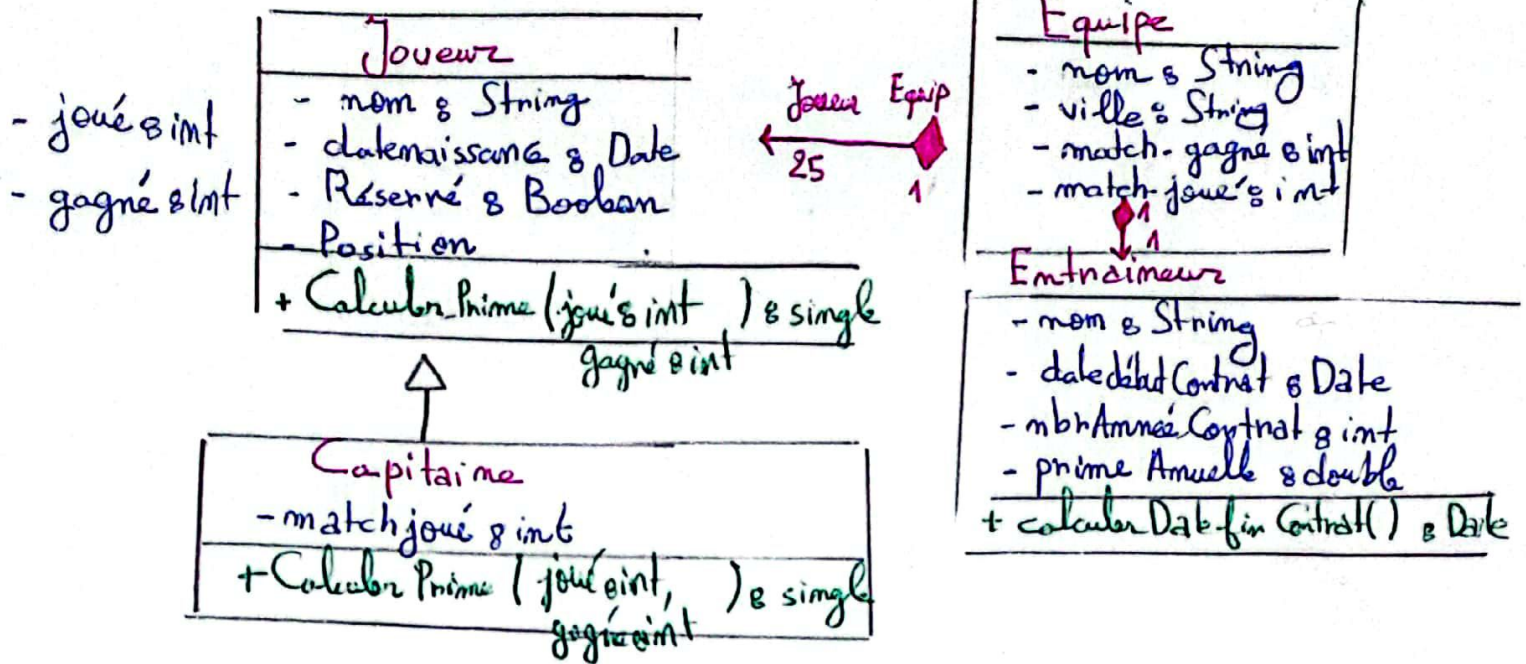 Joueur
- joué : int
- gagné : int
- nom : String
- datenaissance : Date
- Réservé : Boolean
- Position
+ Calculer_Prime (joué : int
gagné : int ) : single
Capitaine
- matchjoué : int
+ Calculer Prime ( joué : int,
gagné : int ) : single
Joueur Equip
25
1
Equipe
- nom : String
- ville : String
- match-gagné : int
- match-joué : int
1
1
Entraineur
- nom : String
- datedébutContrat : Date
- nbrAnnéeContrat : int
- prime Annuelle : double
+ calculer Date fin Contrat() : Date